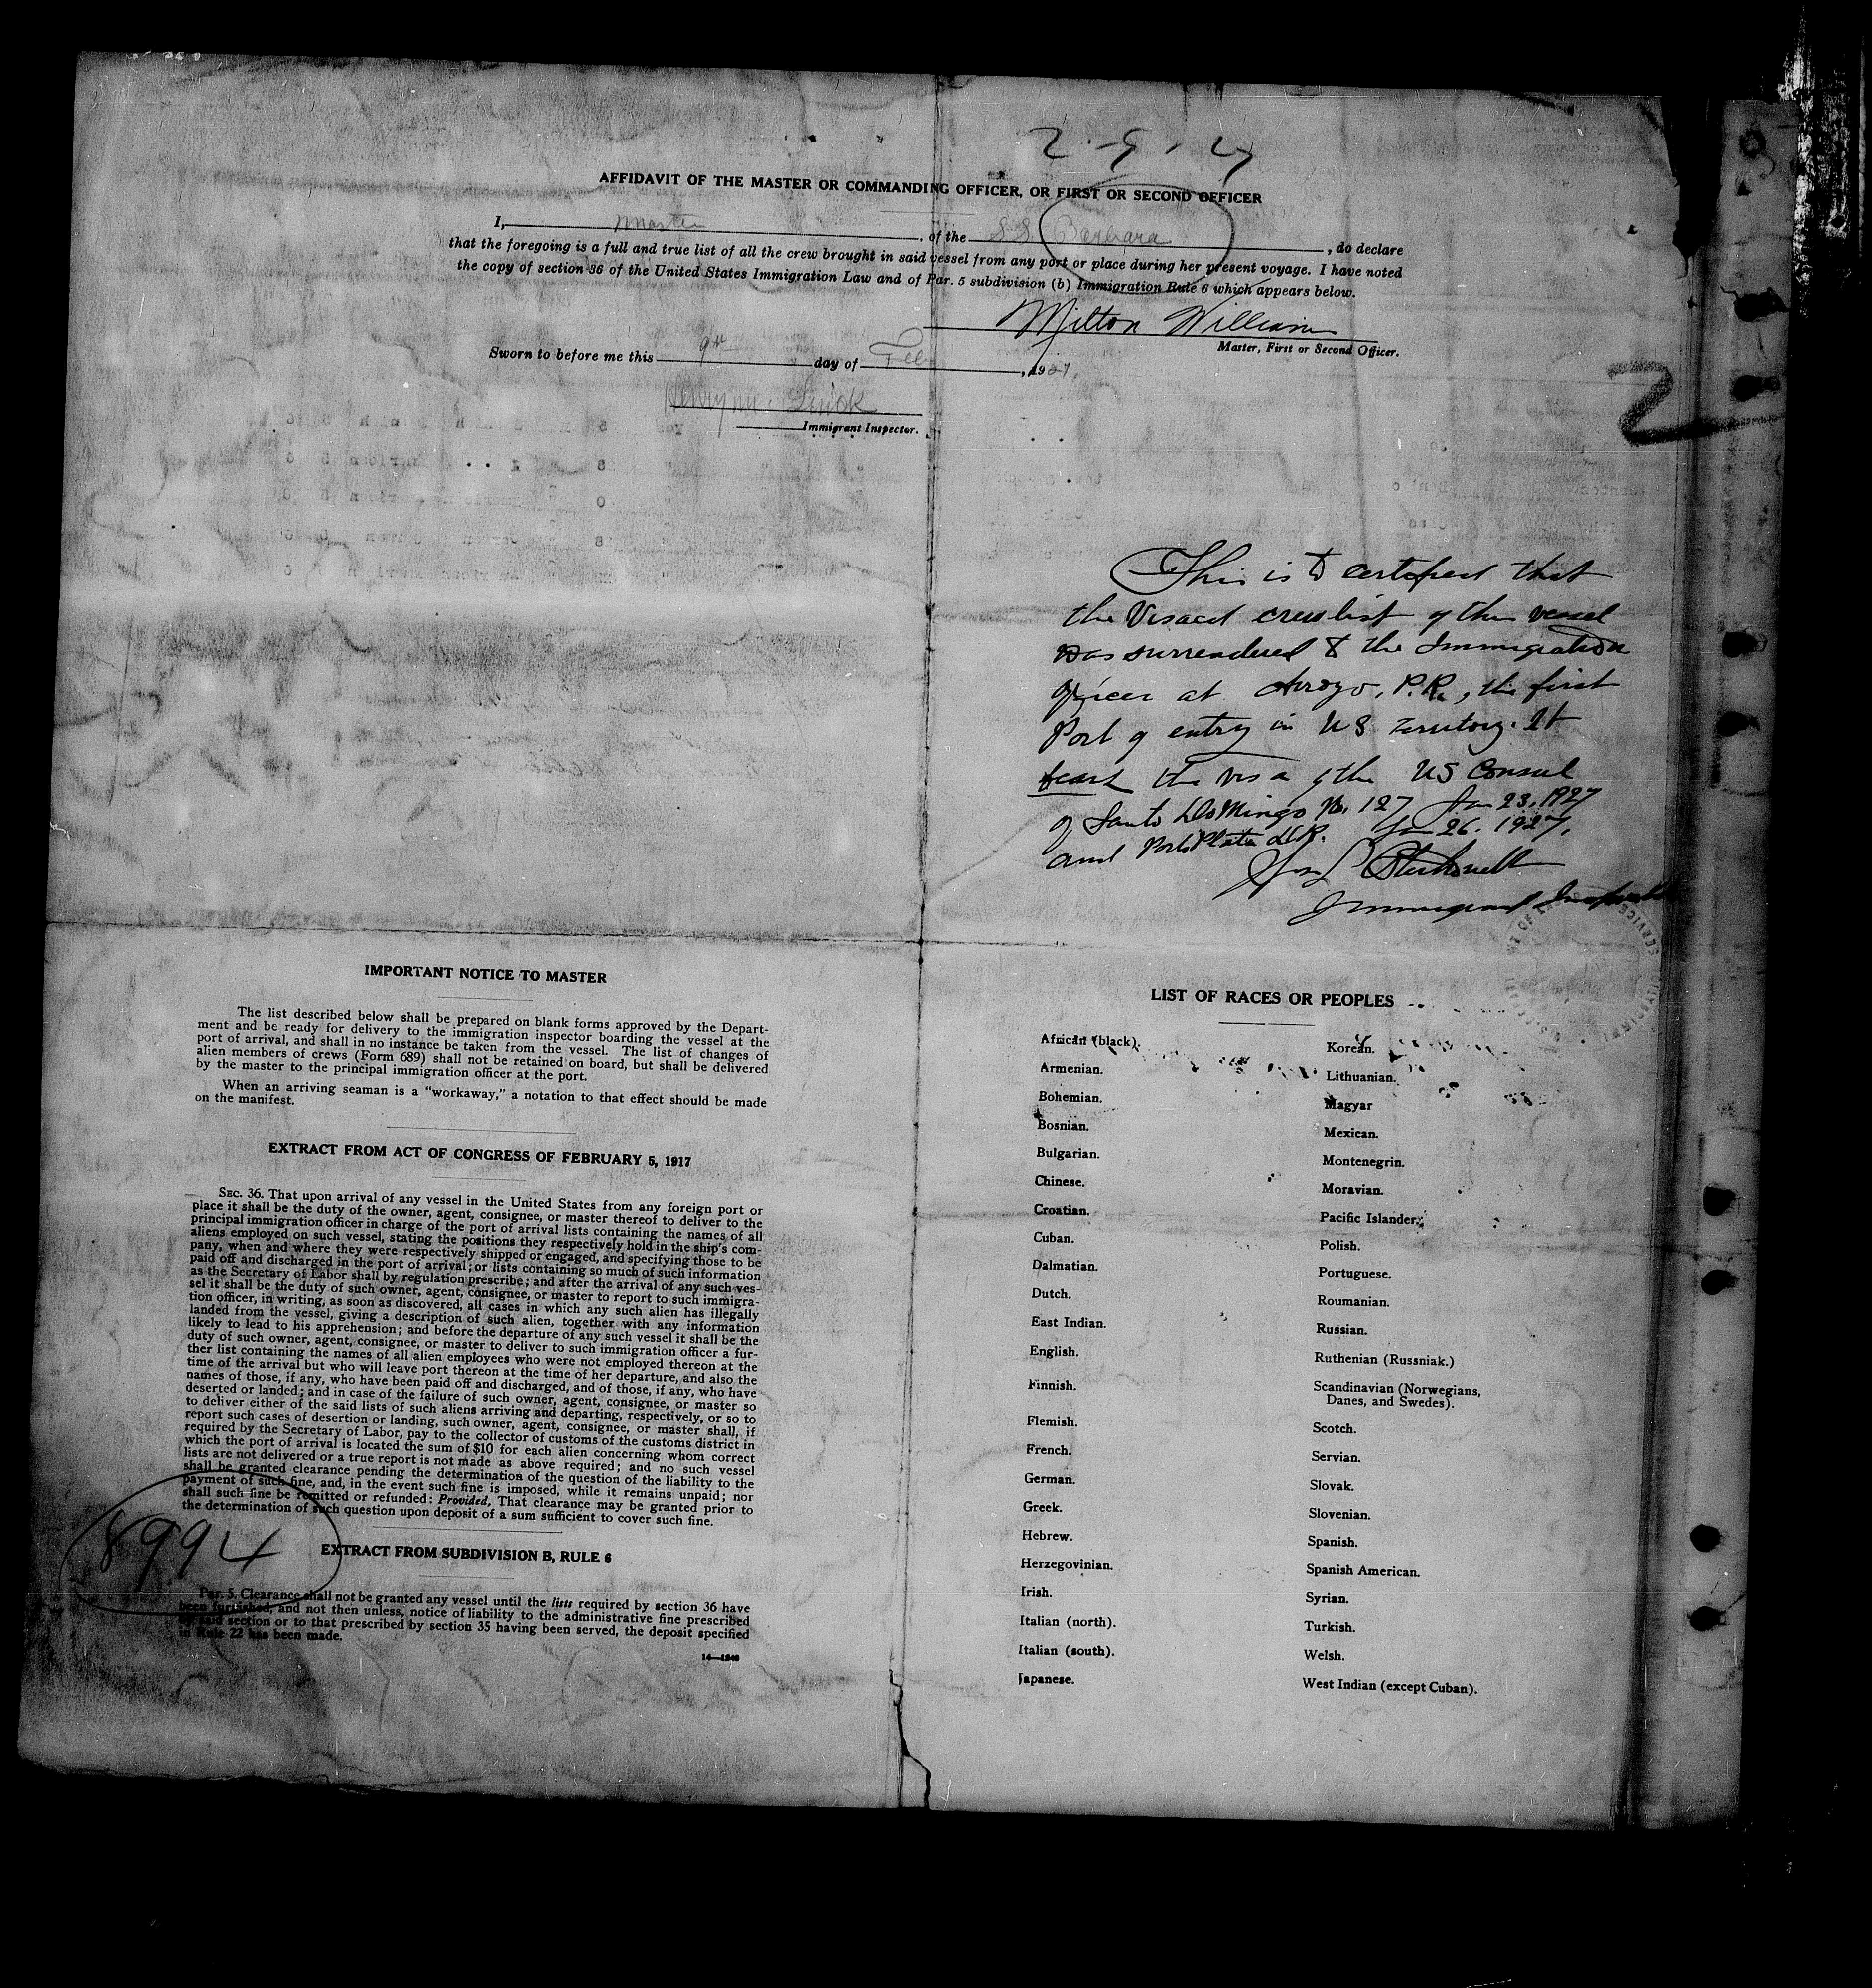 2-9-27
AFFIDAVIT OF THE MASTER OR COMMANDING OFFICER, OR FIRST OR SECOND OFFICER
I, Master, of the S.S. Barbara, do declare
that the foregoing is a full and true list of all the crew brought in said vessel from any port or place during her present voyage. I have noted
the copy of section 36 of the United States Immigration Law and of Par. 5 subdivision (b) Immigration Rule 6 which appears below.
Milton William
Master, First or Second Officer.
Sworn to before me this 9th day of Feb, 1927.
Immigrant Inspector.
2
This is to certified that
the Visaed crew list of this vessel
was surrendered to the Immigration
Officer at Arroyo, P.R., the first
Port of entry in US Territory. It
bears the visa of the US Consul
of Santo Domingo No. 127 Jan 23, 1927
and Porto Plata D.R. Jan 26. 1927.
Immigrant Inspector
IMPORTANT NOTICE TO MASTER
The list described below shall be prepared on blank forms approved by the Depart-
ment and be ready for delivery to the immigration inspector boarding the vessel at the
port of arrival, and shall in no instance be taken from the vessel. The list of changes of
alien members of crews (Form 689) shall not be retained on board, but shall be delivered
by the master to the principal immigration officer at the port.
When an arriving seaman is a "workaway," a notation to that effect should be made
on the manifest.
EXTRACT FROM ACT OF CONGRESS OF FEBRUARY 5, 1917
SEC. 36. That upon arrival of any vessel in the United States from any foreign port or
place it shall be the duty of the owner, agent, consignee, or master thereof to deliver to the
principal immigration officer in charge of the port of arrival lists containing the names of all
aliens employed on such vessel, stating the positions they respectively hold in the ship's com-
pany, when and where they were respectively shipped or engaged, and specifying those to be
paid off and discharged in the port of arrival; or lists containing so much of such information
as the Secretary of Labor shall by regulation prescribe; and after the arrival of any such ves-
sel it shall be the duty of such owner, agent, consignee, or master to report to such immigra-
tion officer, in writing, as soon as discovered, all cases in which any such alien has illegally
landed from the vessel, giving a description of such alien, together with any information
likely to lead to his apprehension; and before the departure of any such vessel it shall be the
duty of such owner, agent, consignee, or master to deliver to such immigration officer a fur-
ther list containing the names of all alien employees who were not employed thereon at the
time of the arrival but who will leave port thereon at the time of her departure, and also the
names of those, if any, who have been paid off and discharged, and of those, if any, who have
deserted or landed; and in case of the failure of such owner, agent, consignee, or master so
to deliver either of the said lists of such aliens arriving and departing, respectively, or so to
report such cases of desertion or landing, such owner, agent, consignee, or master shall, if
required by the Secretary of Labor, pay to the collector of customs of the customs district in
which the port of arrival is located the sum of $10 for each alien concerning whom correct
lists are not delivered or a true report is not made as above required; and no such vessel
shall be granted clearance pending the determination of the question of the liability to the
payment of such fine, and, in the event such fine is imposed, while it remains unpaid; nor
shall such fine be remitted or refunded: Provided, That clearance may be granted prior to
the determination of such question upon deposit of a sum sufficient to cover such fine.
8994
EXTRACT FROM SUBDIVISION B, RULE 6
Par. 5. Clearance shall not be granted any vessel until the lists required by section 36 have
been furnished, and not then unless, notice of liability to the administrative fine prescribed
by said section or to that prescribed by section 35 having been served, the deposit specified
in Rule 22 has been made.
14—1240
LIST OF RACES OR PEOPLES
African (black).
Armenian.
Bohemian.
Bosnian.
Bulgarian.
Chinese.
Croatian.
Cuban.
Dalmatian.
Dutch.
East Indian.
English.
Finnish.
Flemish.
French.
German.
Greek.
Hebrew.
Herzegovinian.
Irish.
Italian (north).
Italian (south).
Japanese.
Korean.
Lithuanian.
Magyar
Mexican.
Montenegrin.
Moravian.
Pacific Islander.
Polish.
Portuguese.
Roumanian.
Russian.
Ruthenian (Russniak.)
Scandinavian (Norwegians,
Danes, and Swedes).
Scotch.
Servian.
Slovak.
Slovenian.
Spanish.
Spanish American.
Syrian.
Turkish.
Welsh.
West Indian (except Cuban).